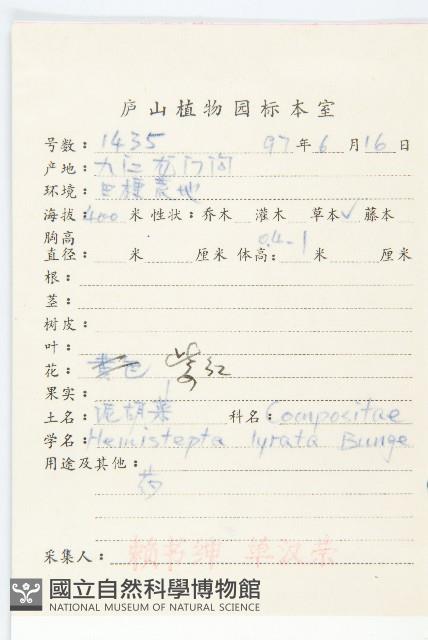 庐山植物园标本室
号数: 1435 97年6月16日
产地: 九江龙门沟
环境: 荒地
海拔: 400米 性状: 乔木 灌木 草本✓ 藤本
胸高
直径: 米 厘米 体高: 0.4-1 米 厘米
根:
茎:
树皮:
叶:
花: 紫红
果实:
土名: 泥胡菜 科名: Compositae
学名: Hemistepta lyrata Bunge
用途及其他:
药
采集人: 赖书绅 单汉荣
國立自然科學博物館
NATIONAL MUSEUM OF NATURAL SCIENCE